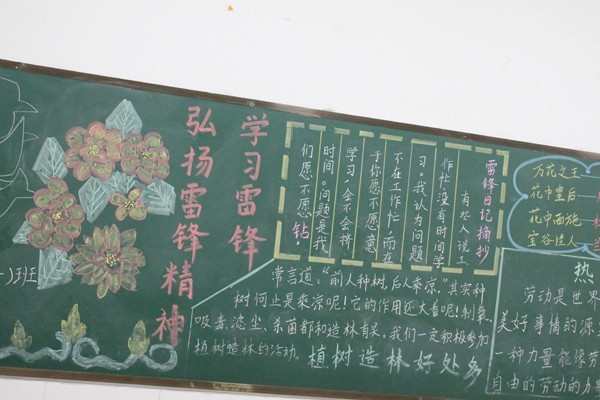 学习雷锋
弘扬雷锋精神
)班
雷锋日记摘抄
有些人说工
作忙,没有时间学
习。我认为问题
不在工作忙,而在
于你愿不愿意
学习,会不会挤
时间。问题是我
们愿不愿钻。
常言道:“前人种树,后人来凉。”其实种
树何止是来凉呢!它的作用还大着呢!制氧、
吸毒、滤尘、杀菌都和造林有关。我们一定积极参加
植树造林的活动。
植树造林好处多
万花之王
花中皇后
花中西施
空谷佳人
热
劳动是世界
美好事情的源
一种力量能像劳
自由的劳动的力